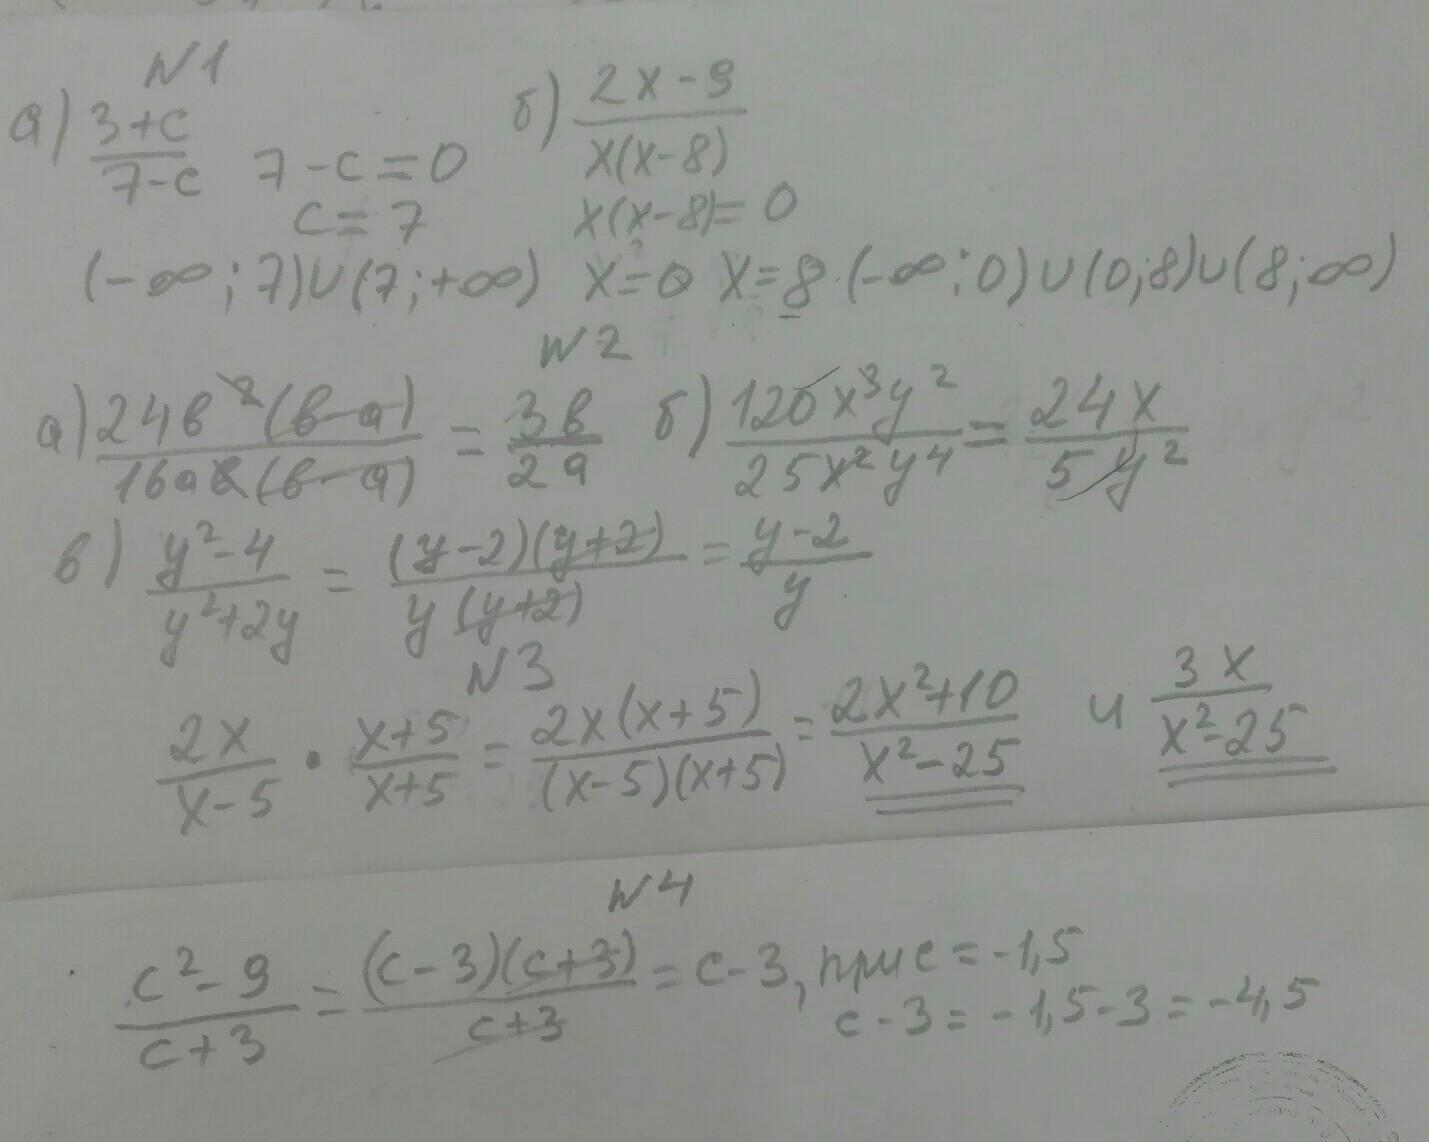 N1
а) (3+c)/(7-c) 7-c=0 б) (2x-9)/(x(x-8))
c=7 x(x-8)=0
(-∞;7)∪(7;+∞) x=0 x=8 (-∞;0)∪(0;8)∪(8;∞)
N2
а) 24в²(в-а)/16ав(в-а) = 3в/2а б) 120x³y²/25x²y⁴ = 24x/5y²
в) (y²-4)/(y²+2y) = (y-2)(y+2)/y(y+2) = (y-2)/y
N3
2x/(x-5) · (x+5)/(x+5) = 2x(x+5)/(x-5)(x+5) = (2x²+10)/(x²-25) и 3x/(x²-25)
N4
(c²-9)/(c+3) = (c-3)(c+3)/(c+3) = c-3, при c=-1,5
c-3=-1,5-3=-4,5